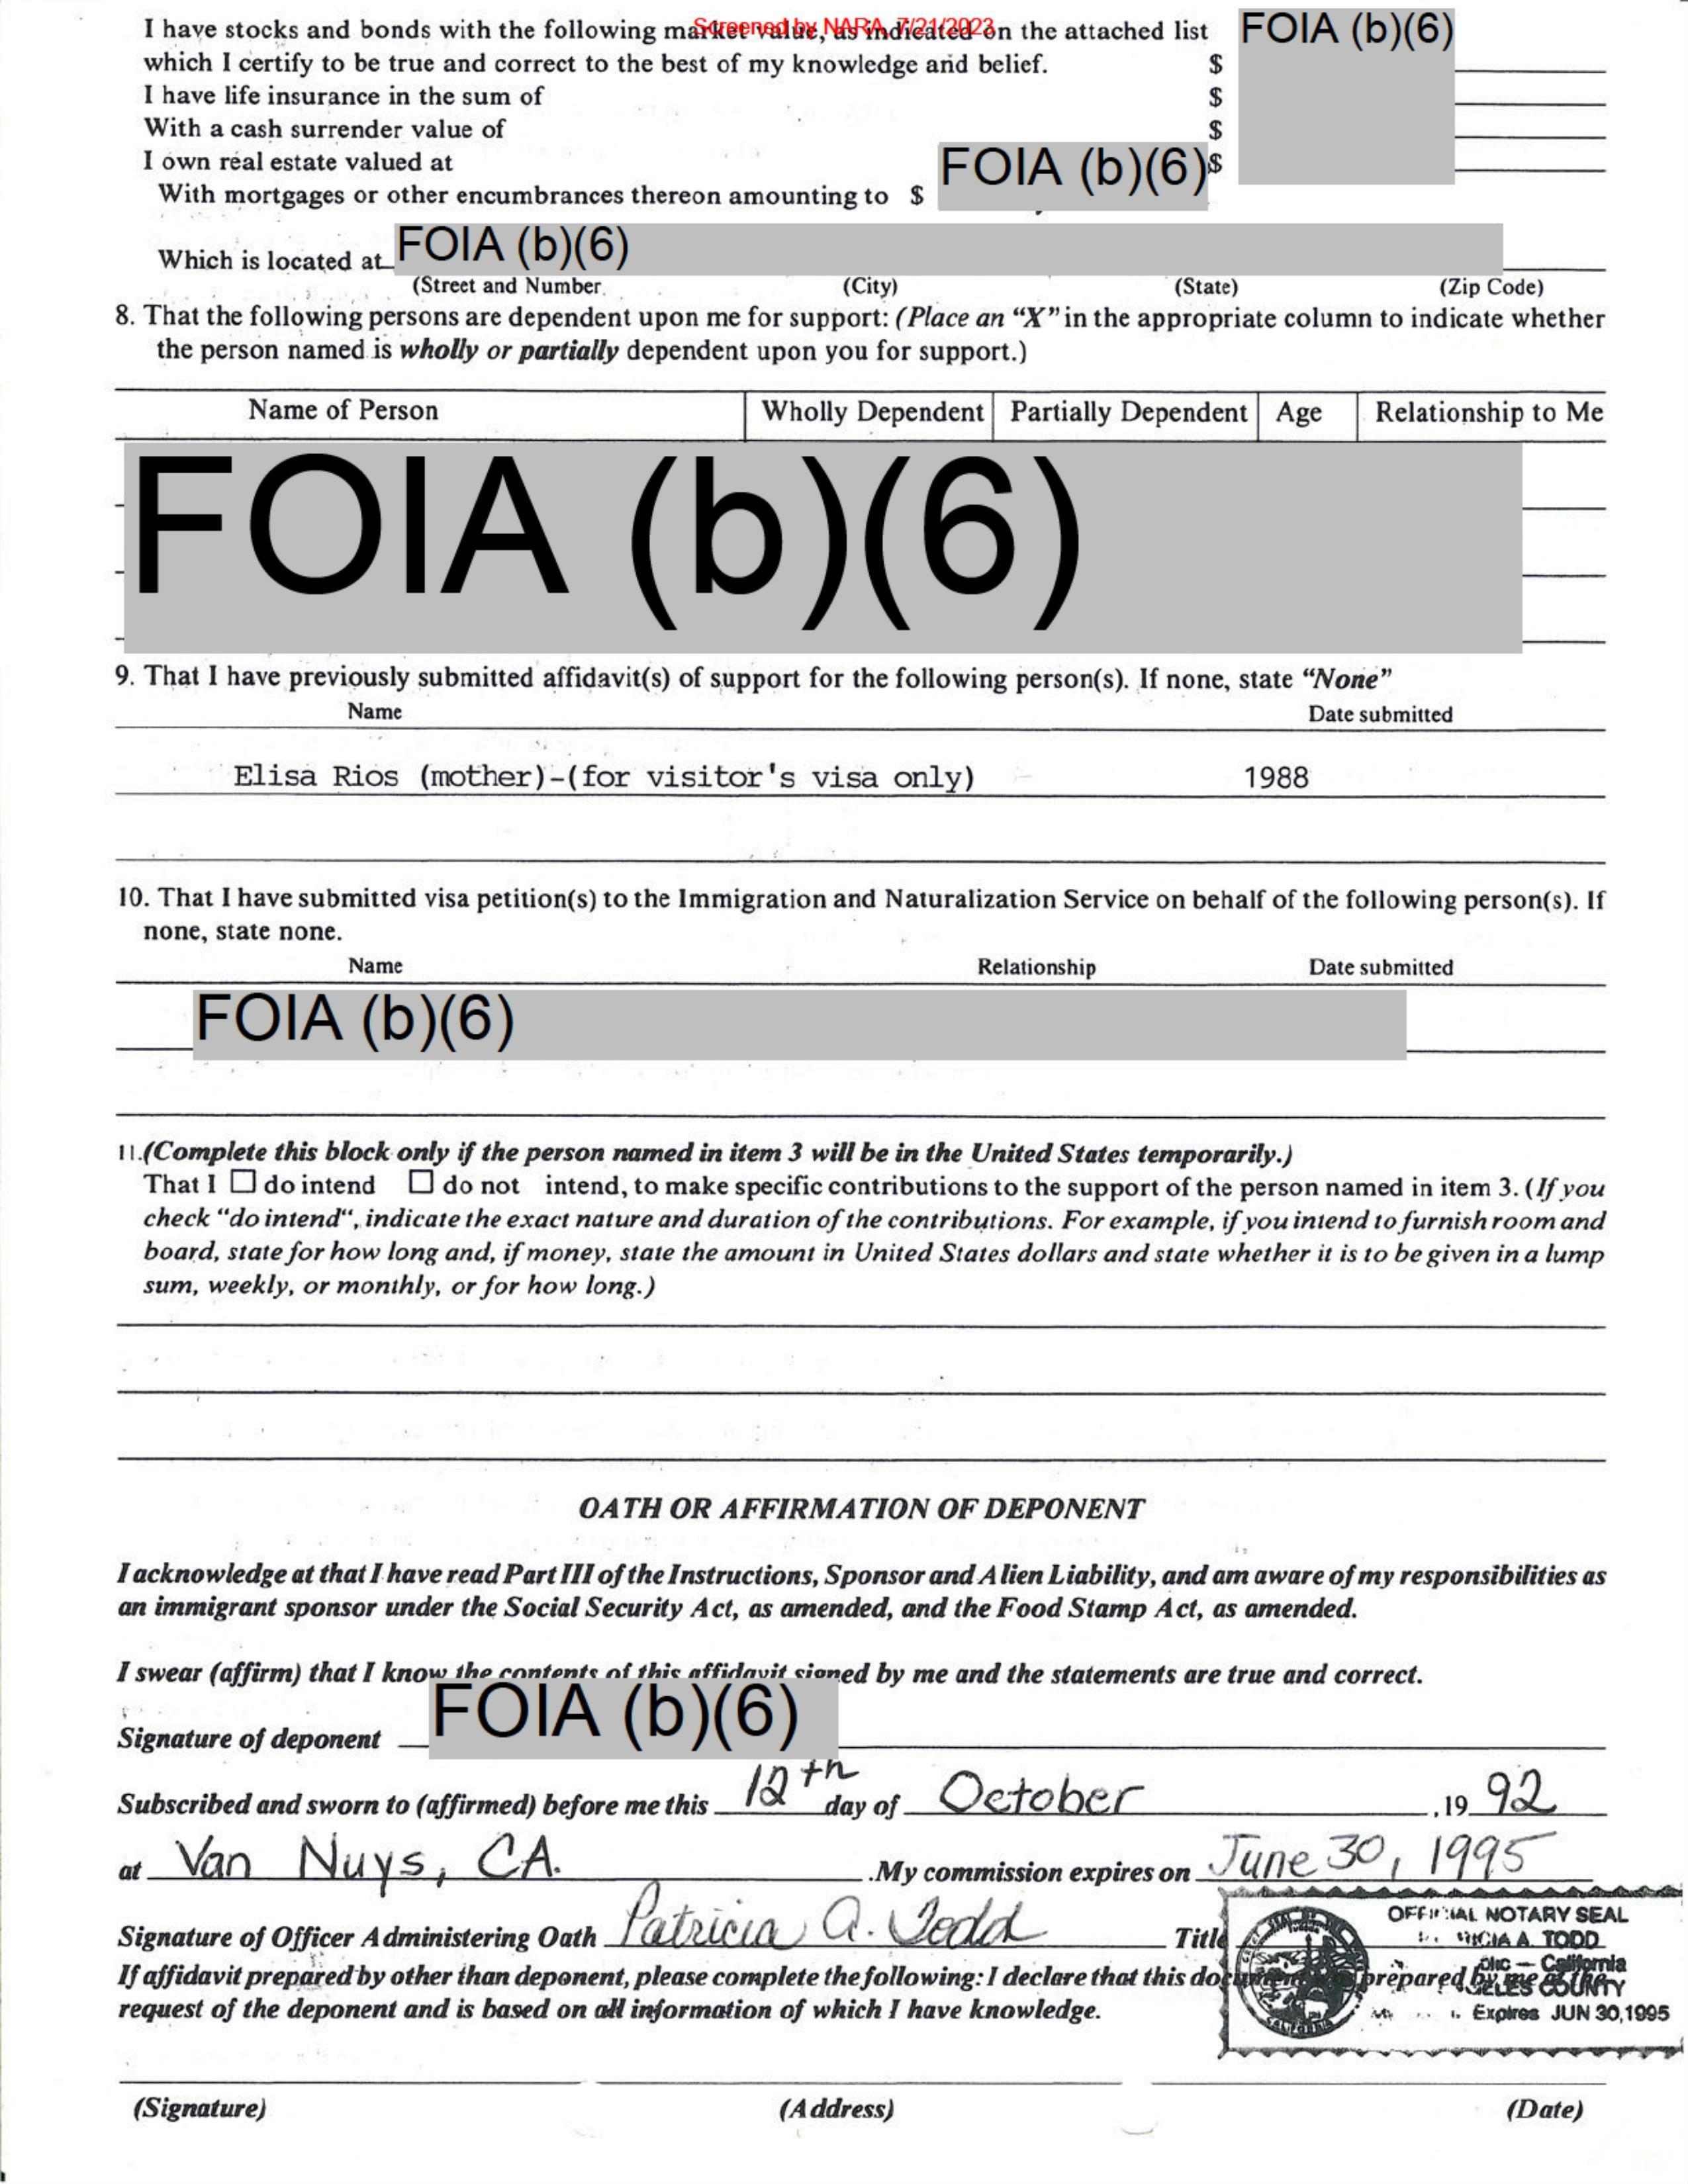 Screened by NARA, 7/21/2023
I have stocks and bonds with the following market value, as indicated on the attached list FOIA (b)(6)
which I certify to be true and correct to the best of my knowledge and belief. $
I have life insurance in the sum of $
With a cash surrender value of $
I own real estate valued at $
With mortgages or other encumbrances thereon amounting to $ FOIA (b)(6)
Which is located at FOIA (b)(6)
(Street and Number (City) (State) (Zip Code)
8. That the following persons are dependent upon me for support: (Place an “X” in the appropriate column to indicate whether
the person named is wholly or partially dependent upon you for support.)
Name of Person Wholly Dependent Partially Dependent Age Relationship to Me
FOIA (b)(6)
9. That I have previously submitted affidavit(s) of support for the following person(s). If none, state “None”
Name Date submitted
Elisa Rios (mother)-(for visitor's visa only) 1988
10. That I have submitted visa petition(s) to the Immigration and Naturalization Service on behalf of the following person(s). If
none, state none.
Name Relationship Date submitted
FOIA (b)(6)
11.(Complete this block only if the person named in item 3 will be in the United States temporarily.)
That I ☐ do intend ☐ do not intend, to make specific contributions to the support of the person named in item 3. (If you
check "do intend", indicate the exact nature and duration of the contributions. For example, if you intend to furnish room and
board, state for how long and, if money, state the amount in United States dollars and state whether it is to be given in a lump
sum, weekly, or monthly, or for how long.)
OATH OR AFFIRMATION OF DEPONENT
I acknowledge at that I have read Part III of the Instructions, Sponsor and Alien Liability, and am aware of my responsibilities as
an immigrant sponsor under the Social Security Act, as amended, and the Food Stamp Act, as amended.
I swear (affirm) that I know the contents of this affidavit signed by me and the statements are true and correct.
Signature of deponent FOIA (b)(6)
Subscribed and sworn to (affirmed) before me this 12th day of October ,19 92
at Van Nuys, CA. .My commission expires on June 30, 1995
Signature of Officer Administering Oath Patricia A. Todd Title
OFFICIAL NOTARY SEAL
A. TODD
California
COUNTY
Expires JUN 30,1995
If affidavit prepared by other than deponent, please complete the following: I declare that this document was prepared by me at the
request of the deponent and is based on all information of which I have knowledge.
(Signature) (Address) (Date)